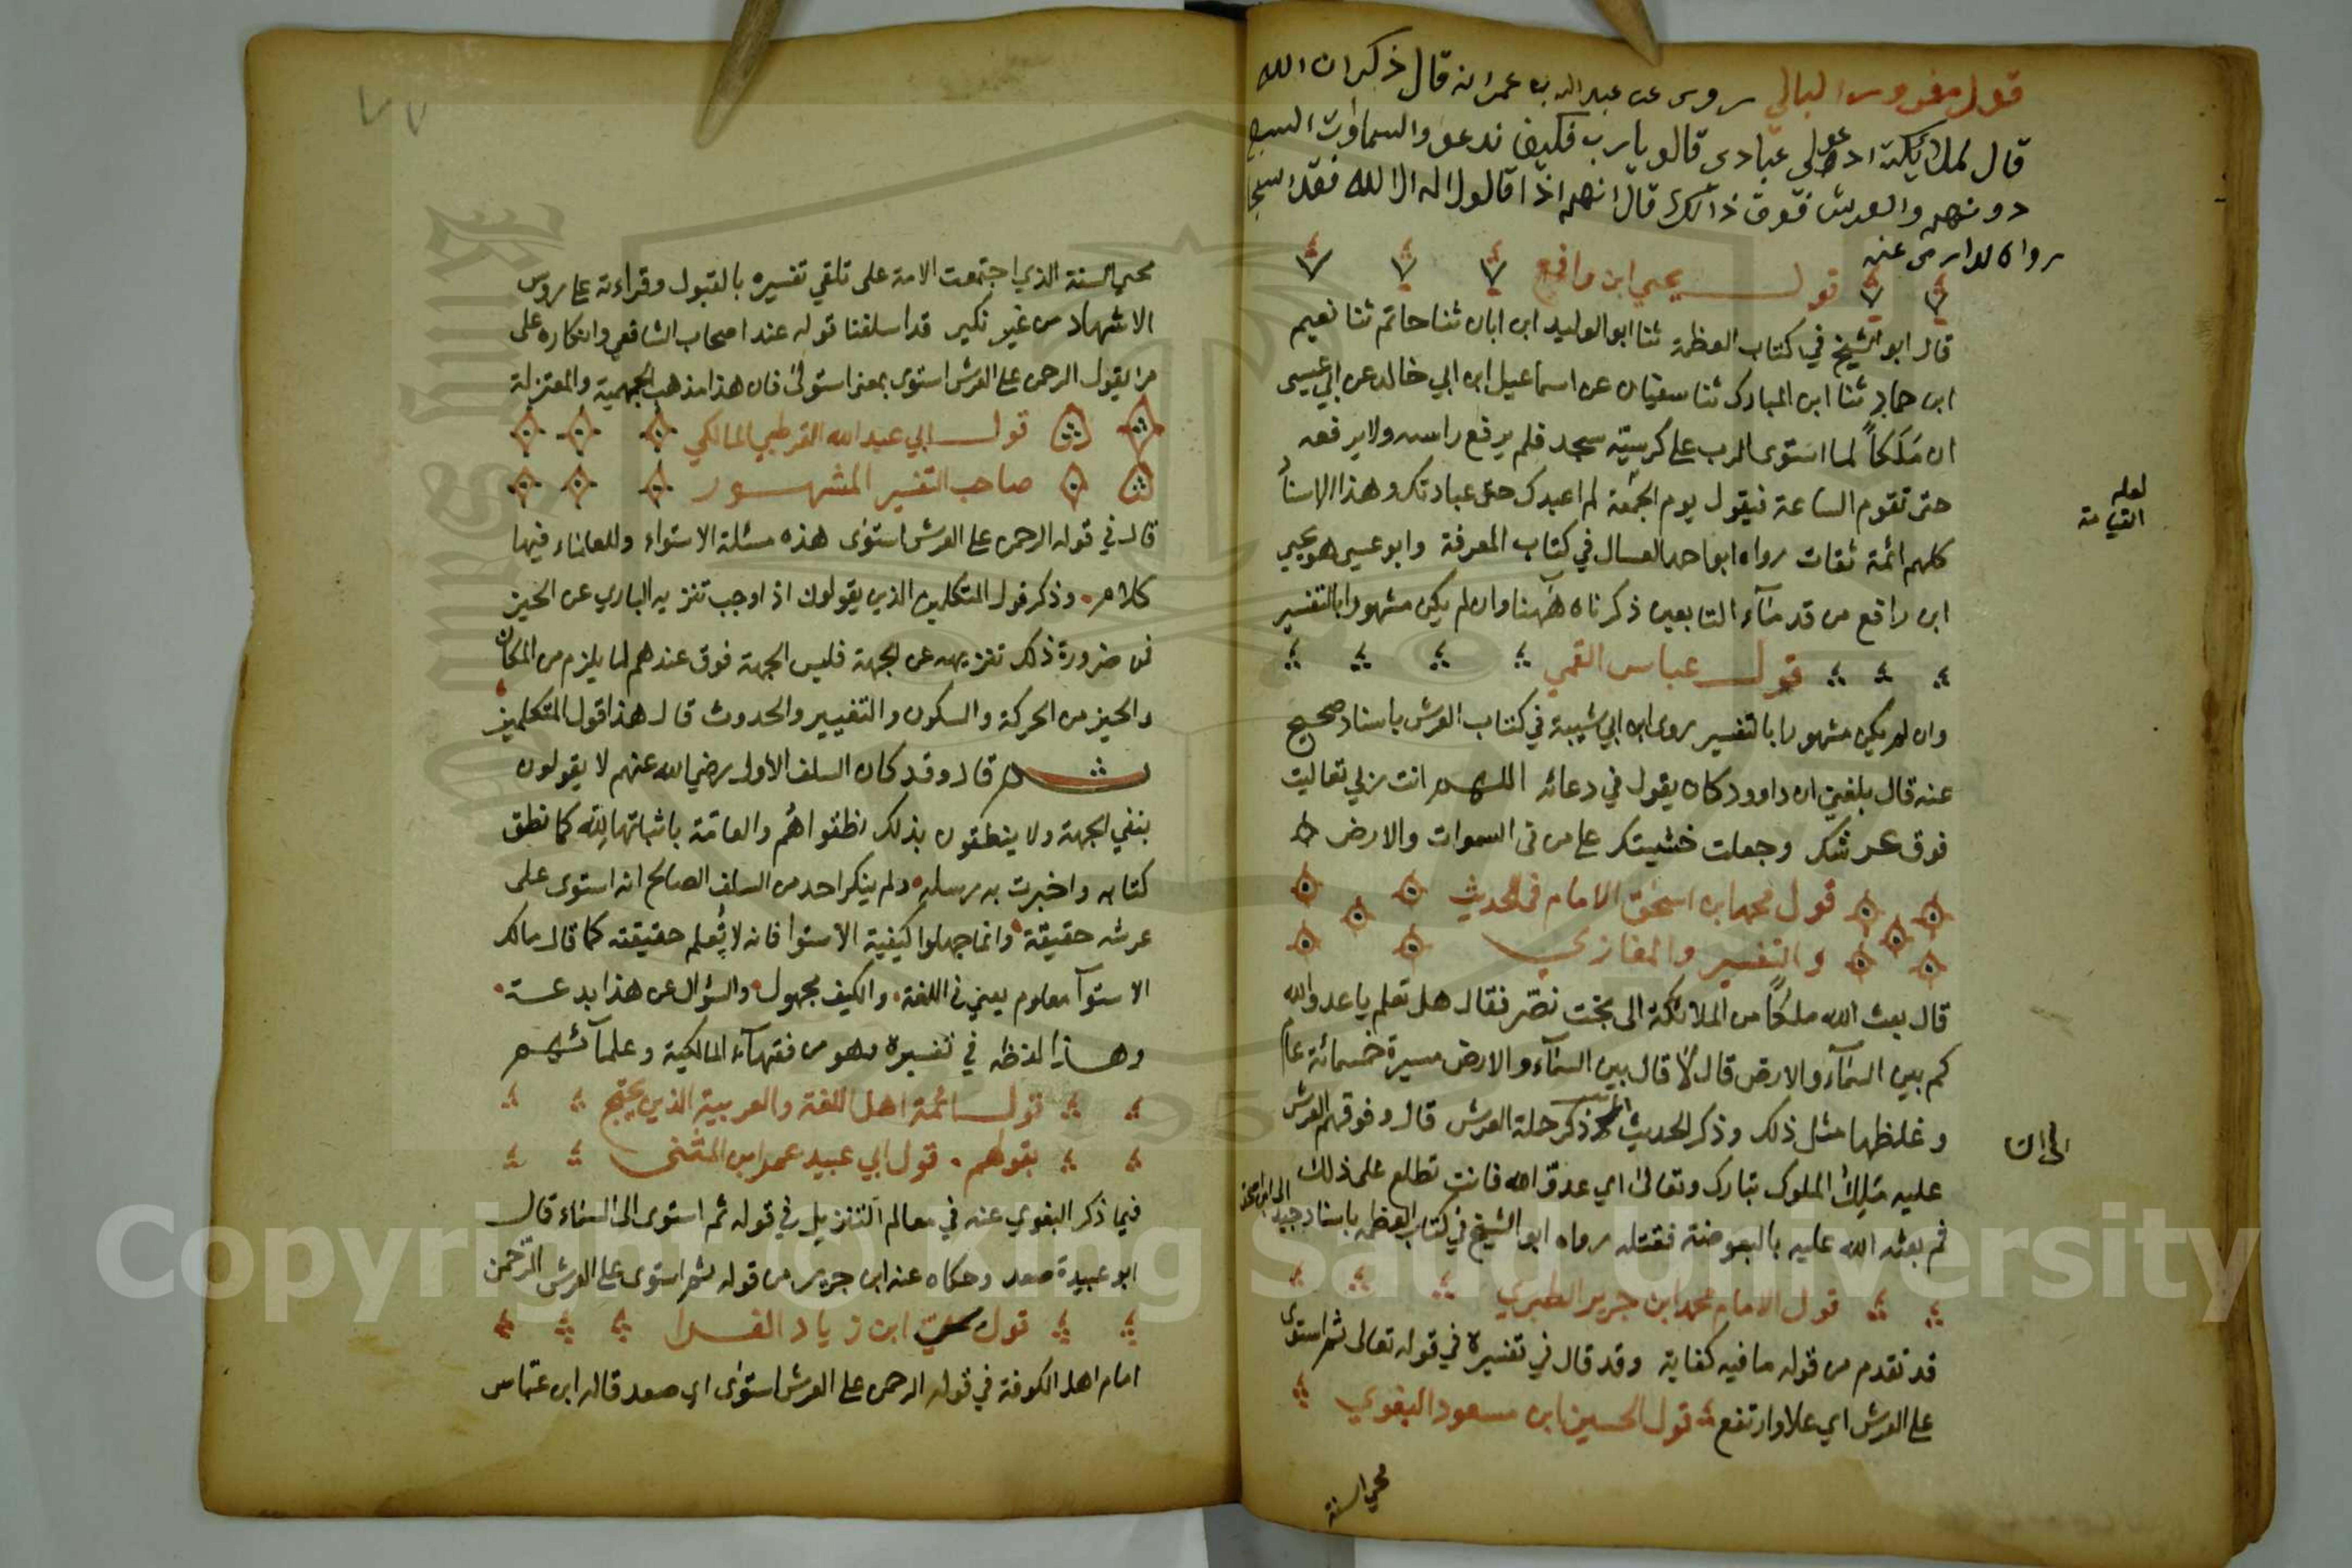 قول البالي روى عن عبد الله بن عمر انه قال ذكر ان الله
قال لملائكته ادعو لي عبادى قالو يا رب فكيف ندعو والسماوات السبع
دونهم والعرش فوق ذالك قال انهم اذا قالو لا اله الا الله فقد استجا
رواه الدارمى عنه
قول يحيى ابن رافع
قال ابو الشيخ في كتاب العظمة ثنا ابو الوليد ابن ابان ثنا حاتم ثنا نعيم
ابن حماد ثنا ابن المبارك ثنا سفيان عن اسماعيل ابن ابي خالد عن ابي عيسى
ان مَلَكاً لما استوى الرب على كرسيه سجد فلم يرفع راسه ولا يرفعه
حتى تقوم الساعة فيقول يوم الجمعة لم اعبدك حق عبادتك وهذا الاسناد
لعله
القيامة
كلهم ائمة ثقات رواه ابو احمد العسال في كتاب المعرفة وابو عيسى هو يحيى
ابن رافع من قدماء التابعين ذكرناه ههنا وان لم يكن مشهورا بالتفسير
قول عباس القمي
وان لم يكن مشهورا بالتفسير روى ابن ابي شيبة في كتاب العرش باسناد صحيح
عنه قال بلغني ان داوود كان يقول في دعائه اللهم انت ربي تعاليت
فوق عرشك وجعلت خشيتك على من في السموات والارض
قول محمد ابن اسحق الامام في الحديث
والتفسير والمغازي
قال بعث الله ملكاً من الملائكة الى بخت نصّر فقال هل تعلم يا عدو الله
كم بين السماء والارض قال لا قال بين السماء والارض مسيرة خمسمائة عام
وغلظها مثل ذلك وذكر الحديث ذكر حملة العرش قال وفوقهم العرش
الى ان
عليه مَلِك الملوك تبارك وتعالى اي عدوّ الله فانت تطلع على ذلك
ثم بعث الله عليه بالبعوضة فقتلته رواه ابو الشيخ في كتاب العظمة باسناد جيد الى ابن اسحق
قول الامام محمد ابن جرير الطبري
قد تقدم من قوله ما فيه كفاية وقد قال في تفسيره في قوله تعالى ثم استوى
على العرش اي علا وارتفع قول الحسين ابن مسعود البغوي
محي السنة
٧٧
محي السنة الذي اجتمعت الامة على تلقي تفسيره بالقبول وقراءته على روس
الاشهاد من غير نكير قد اسلفنا قوله عند اصحاب الشافعي وانكاره على
من يقول الرحمن على العرش استوى بمعنى استولى فان هذا مذهب الجهمية والمعتزلة
قول ابي عبد الله القرطبي المالكي
صاحب التفسير المشهور
قال في قوله الرحمن على العرش استوى هذه مسئلة الاستواء وللعلماء فيها
كلام وذكر قول المتكلمين الذين يقولون اذا وجب تنزيه الباري عن الحيز
فمن ضرورة ذلك تنزيهه عن الجهة فليس الجهة فوق عندهم لما يلزم من المكان
والحيز من الحركة والسكون والتغيير والحدوث قال هذا قول المتكلمين
ثم قال وقد كان السلف الاول رضي الله عنهم لا يقولون
بنفي الجهة ولا ينطقون بذلك نطقوا هم والعامّة باثباتها لله كما نطق
كتابه واخبرت به رسله ولم ينكر احد من السلف الصالح انه استوى على
عرشه حقيقة وانما جهلوا كيفية الاستوا فانه لا يُعلم حقيقته كما قال مالك
الاستوآ معلوم يعني في اللغة والكيف مجهول والسؤال عن هذا بدعة
وهذا لفظه في تفسيره وهو من فقهآء المالكية وعلمآئهم
قول ائمة اهل اللغة والعربية الذين يحتج
بقولهم قول ابي عبيد عمر ابن المثنى
فيما ذكر البغوي عنه في معالم التنزيل في قوله ثم استوى الى السماء قال
ابو عبيدة صعد وحكاه عنه ابن جرير من قوله ثم استوى على العرش الرّحمن
قول ابن زياد الفرا
امام اهل الكوفة في قوله الرحمن على العرش استوى اي صعد قاله ابن عبّاس
Copyright © King Saud University